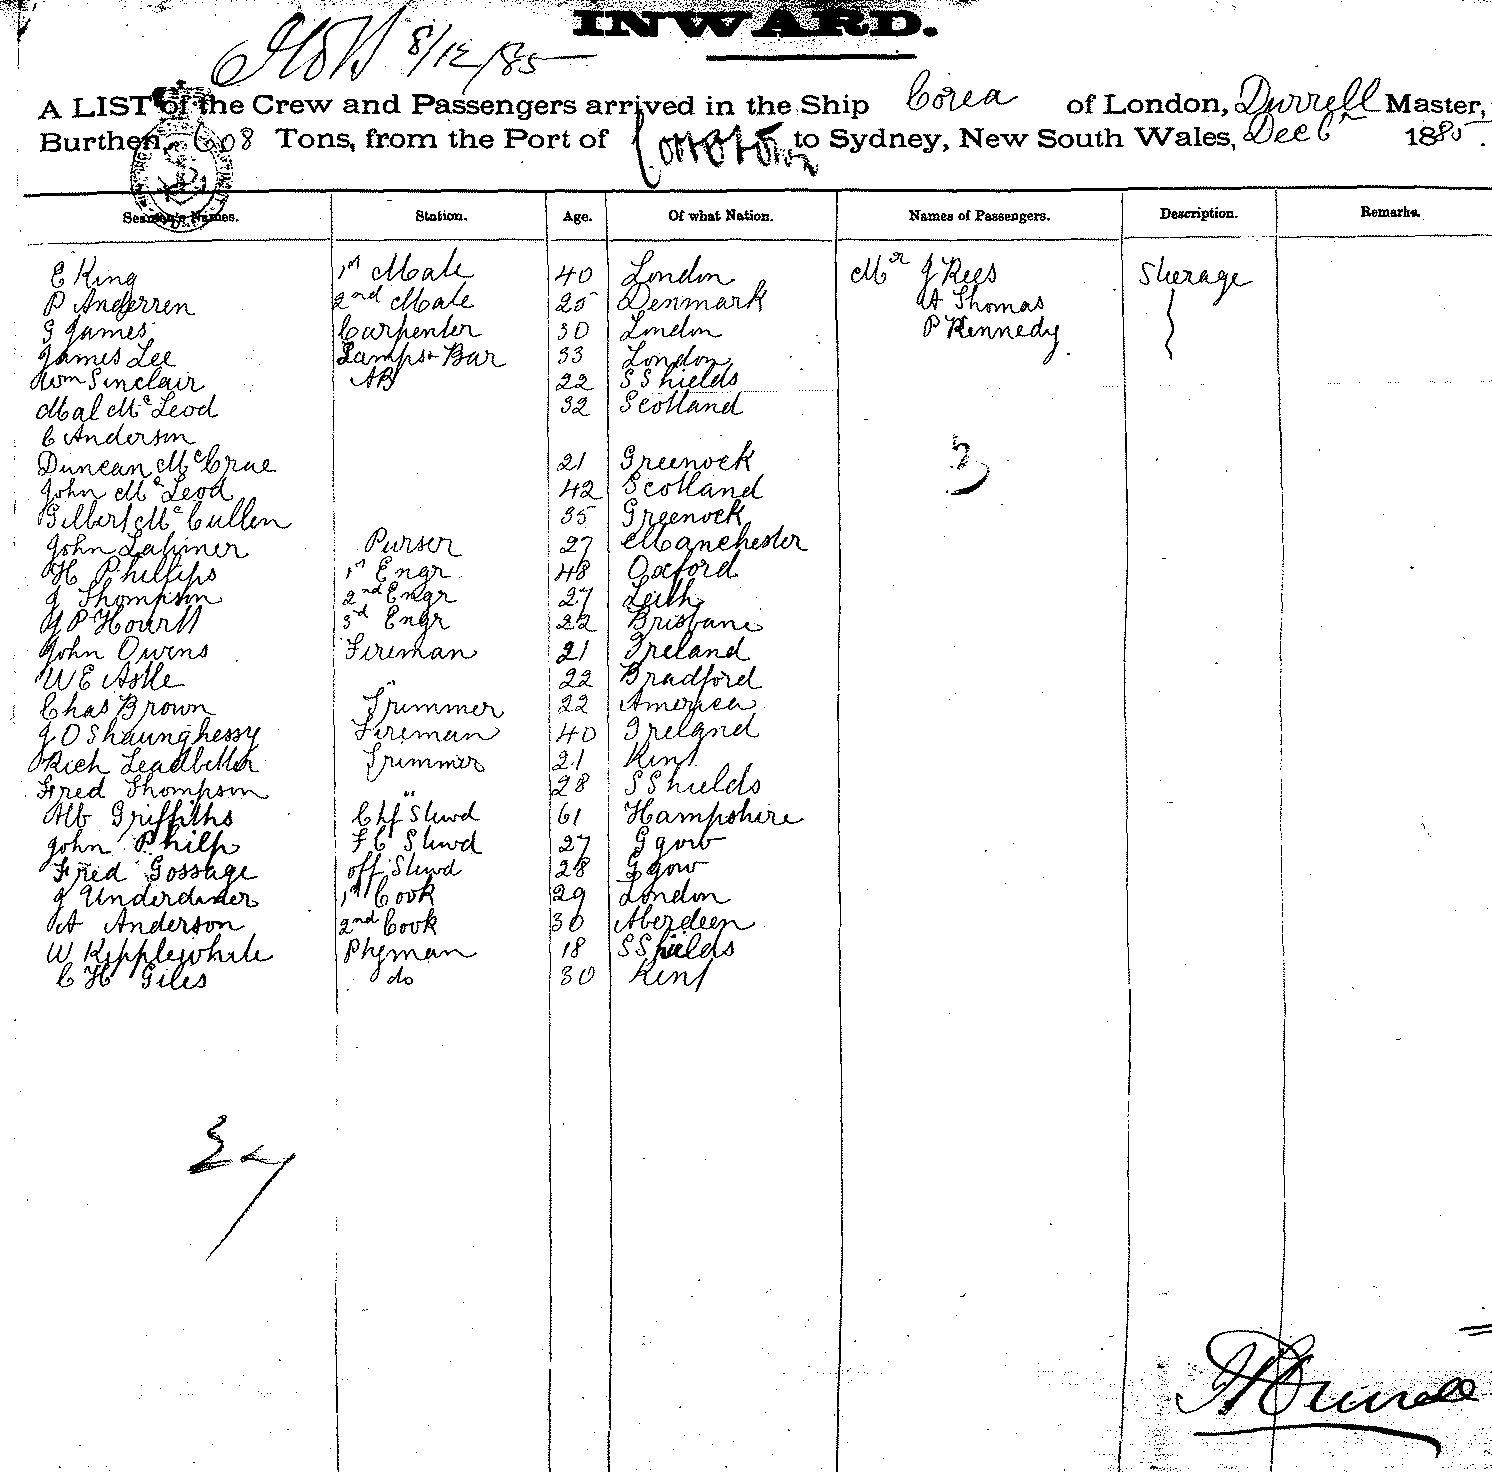 INWARD.
8/12/85
A LIST of the Crew and Passengers arrived in the Ship Corea of London, Durrell Master,
Burthen, 608 Tons, from the Port of to Sydney, New South Wales, Dec 6 1885.
Seamen's Names. Station. Age. Of what Nation. Names of Passengers. Description. Remarks.
E King 1st Mate 40 London Mr J Rees Sterage
P Anderren 2nd Mate 25 Denmark A Thomas
G James Carpenter 30 London P Kennedy
James Lee Lamps & Bar 33 London
Wm Sinclair AB 22 S Shields
Mal McLeod 32 Scotland
C Anderson
Duncan McCrae 21 Greenock 3
John McLeod 42 Scotland
Gilbert McCullen 35 Greenock
John Latimer Purser 27 Manchester
H Phillips 1st Engr 48 Oxford
J Thompson 2nd Engr 27 Leith
3rd Engr 22 Brisbane
John Owens Fireman 21 Ireland
W E Astle " 22 Bradford
Chas Brown Trimmer 22 America
J O Shaunghessy Fireman 40 Ireland
Rich Leadbetter Trimmer 21 Kent
Fred Thompson " 28 S Shields
Alb Griffiths Chf Stwd 61 Hampshire
John Philp F C Stwd 27 G gow
Fred Gossage off Stwd 28 G gow
J Underdiner 1st Cook 29 London
A Anderson 2nd Cook 30 Aberdeen
W Kepplewhite Ptyman 18 S Shields
C H Giles do 30 Kent
27